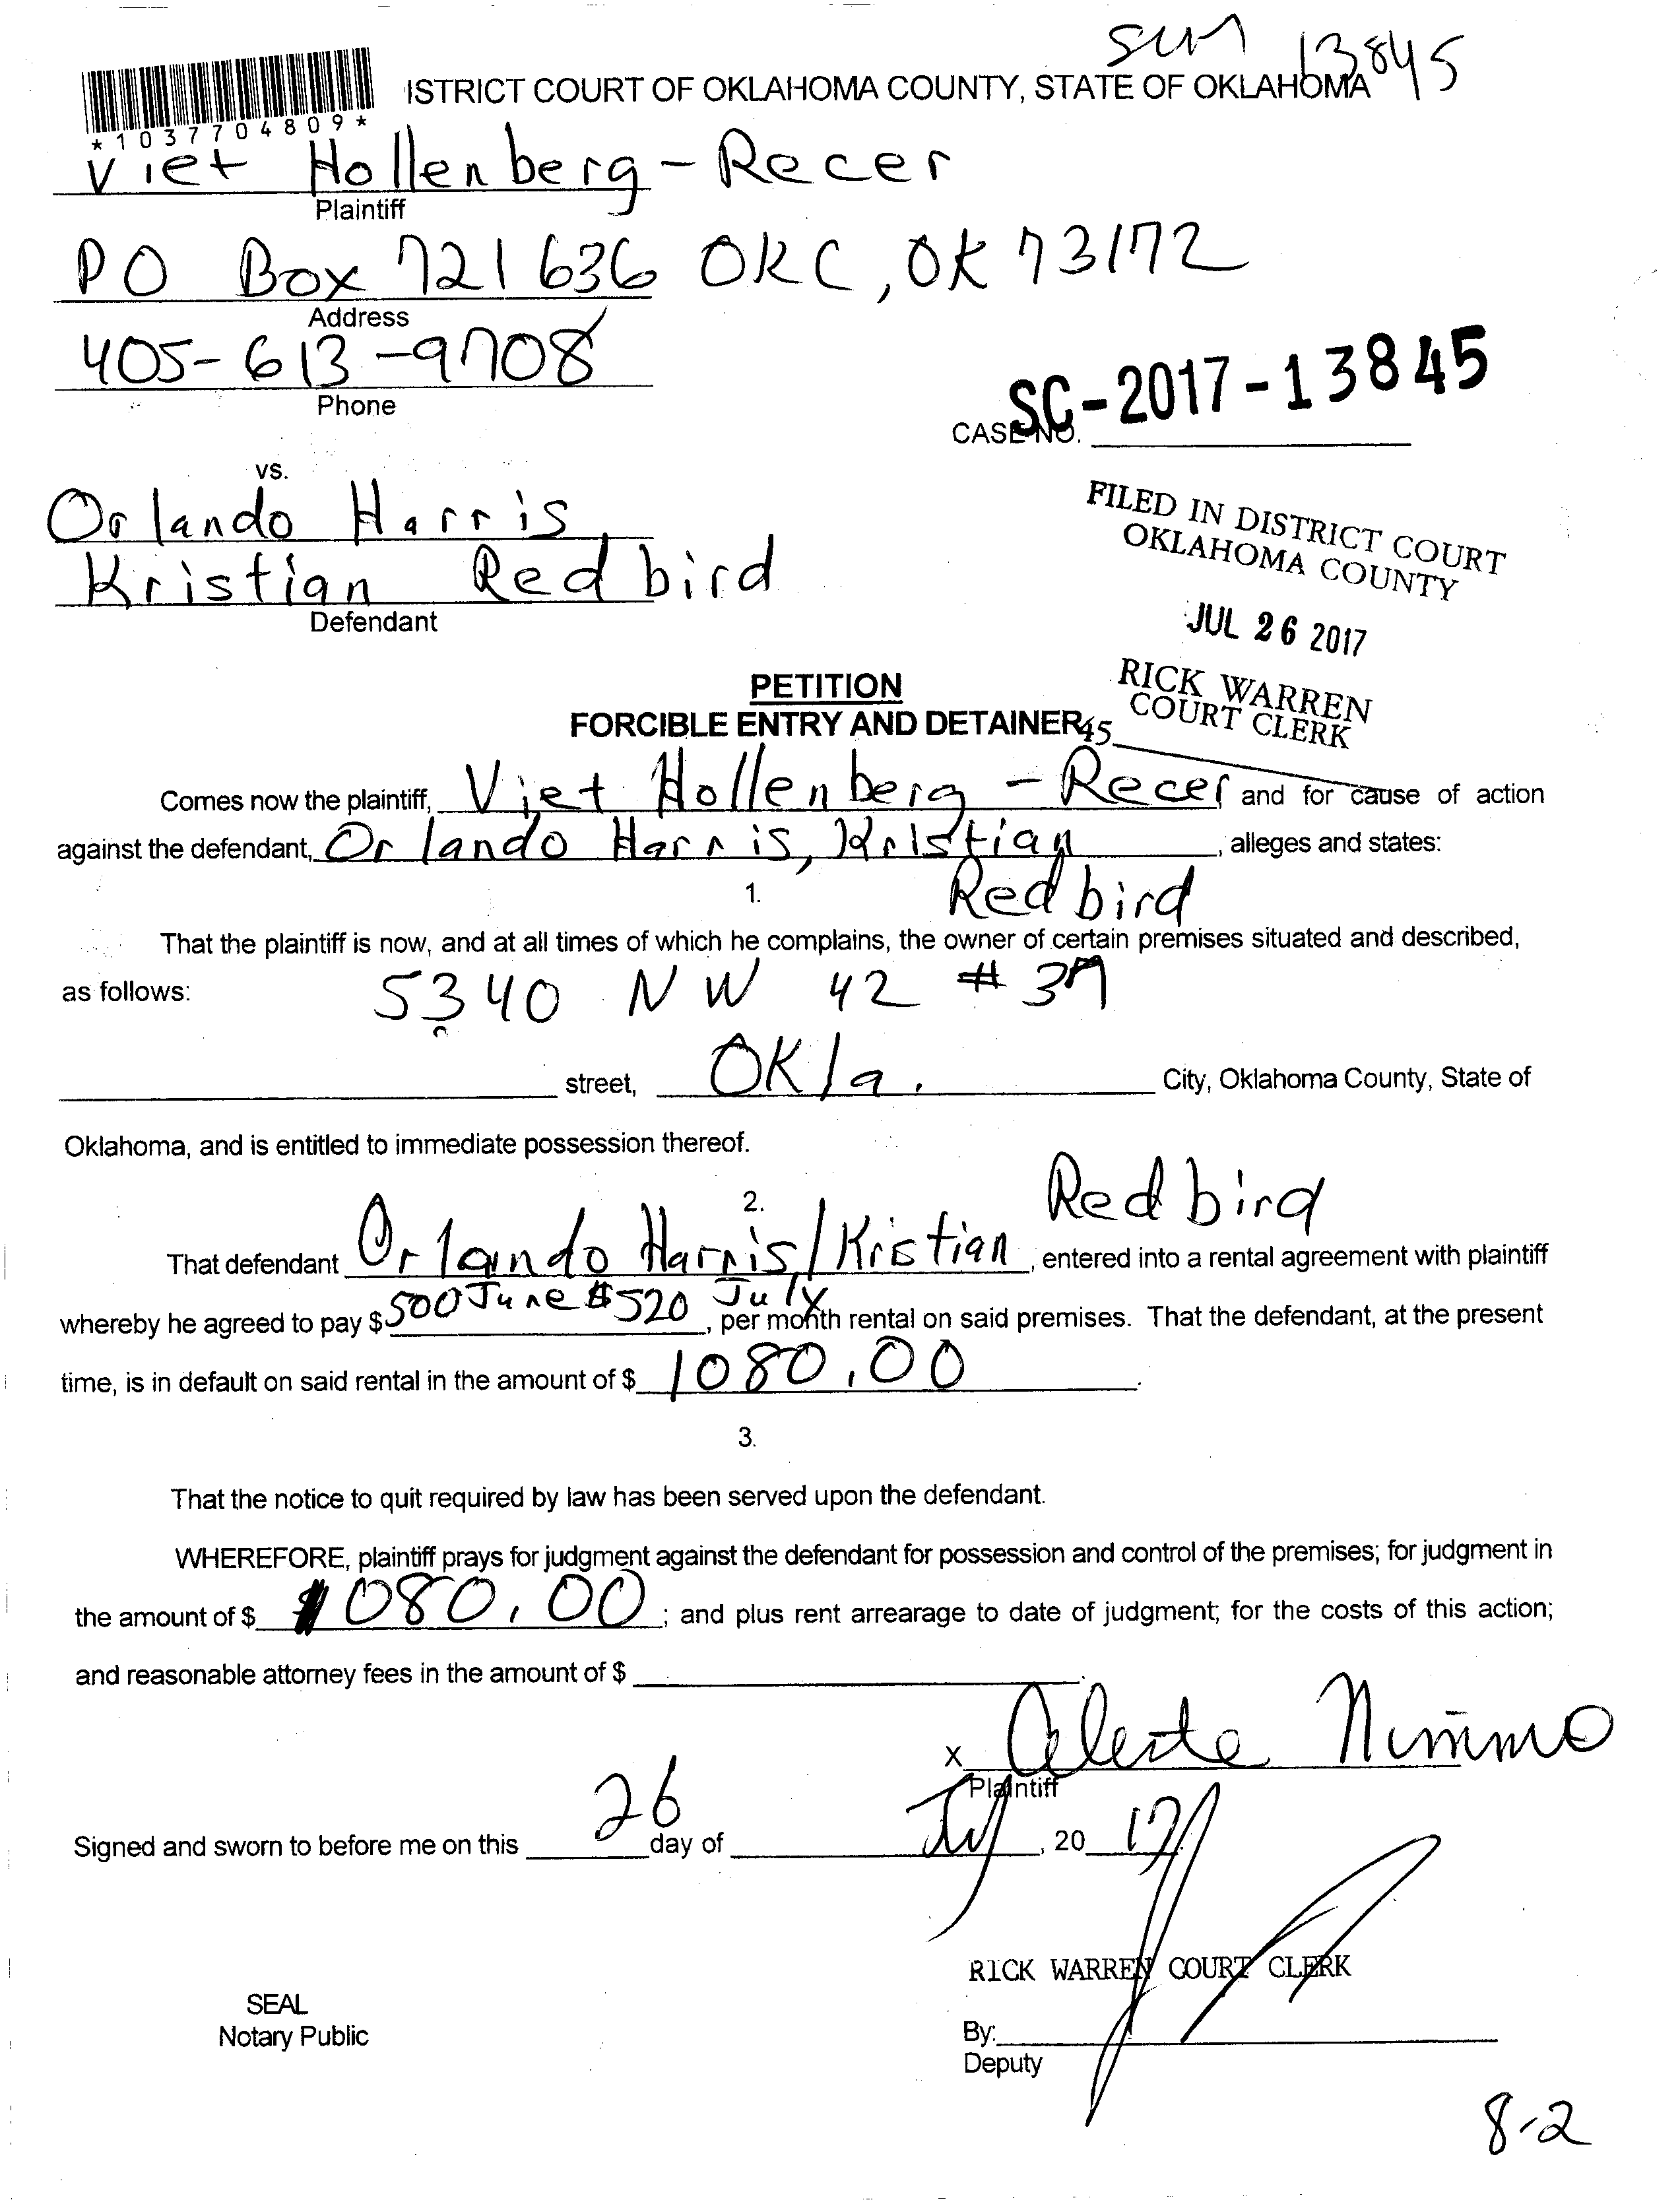 sum 13845
ISTRICT COURT OF OKLAHOMA COUNTY, STATE OF OKLAHOMA
*1037704809*
Viet Hollenberg-Recer
Plaintiff
PO Box 721636 OKC, OK 73172
Address
405-613-9708
Phone
SC-2017-13845
CASE NO.
vs.
Orlando Harris
Kristian Redbird
Defendant
FILED IN DISTRICT COURT
OKLAHOMA COUNTY
JUL 26 2017
RICK WARREN
COURT CLERK
45
PETITION
FORCIBLE ENTRY AND DETAINER
Comes now the plaintiff, Viet Hollenberg-Recer and for cause of action
against the defendant, Orlando Harris, Kristian Redbird, alleges and states:
1.
That the plaintiff is now, and at all times of which he complains, the owner of certain premises situated and described,
as follows: 5340 NW 42 #37
street, Okla. City, Oklahoma County, State of
Oklahoma, and is entitled to immediate possession thereof.
2.
That defendant Orlando Harris/Kristian Redbird, entered into a rental agreement with plaintiff
whereby he agreed to pay $ 500 June $520 July, per month rental on said premises. That the defendant, at the present
time, is in default on said rental in the amount of $ 1080.00.
3.
That the notice to quit required by law has been served upon the defendant.
WHEREFORE, plaintiff prays for judgment against the defendant for possession and control of the premises; for judgment in
the amount of $ 1080.00; and plus rent arrearage to date of judgment; for the costs of this action;
and reasonable attorney fees in the amount of $
x Celeste Nimmo
Plaintiff
Signed and sworn to before me on this 26 day of July, 2017
RICK WARREN COURT CLERK
SEAL
Notary Public
By:
Deputy
8-2